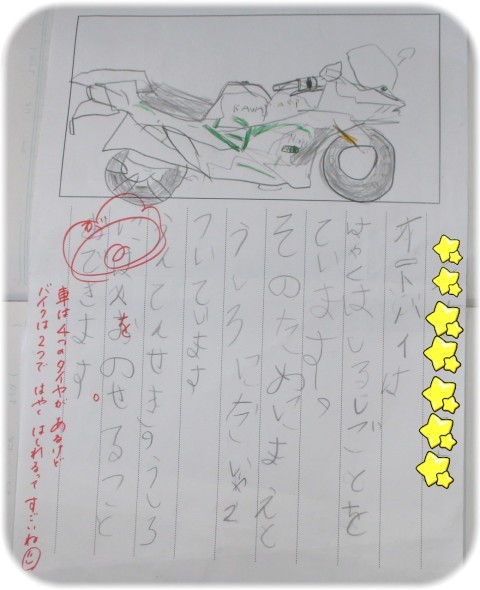 KAWA
オートバイは
はやくはしるしごとを
ています。
そのためにまえと
うしろにたいや2
ついています
うんてんせきのうしろ
を のせること
ができます。
車は4つのタイヤがあるけど
バイクは2つで はやく はしれるって すごいね